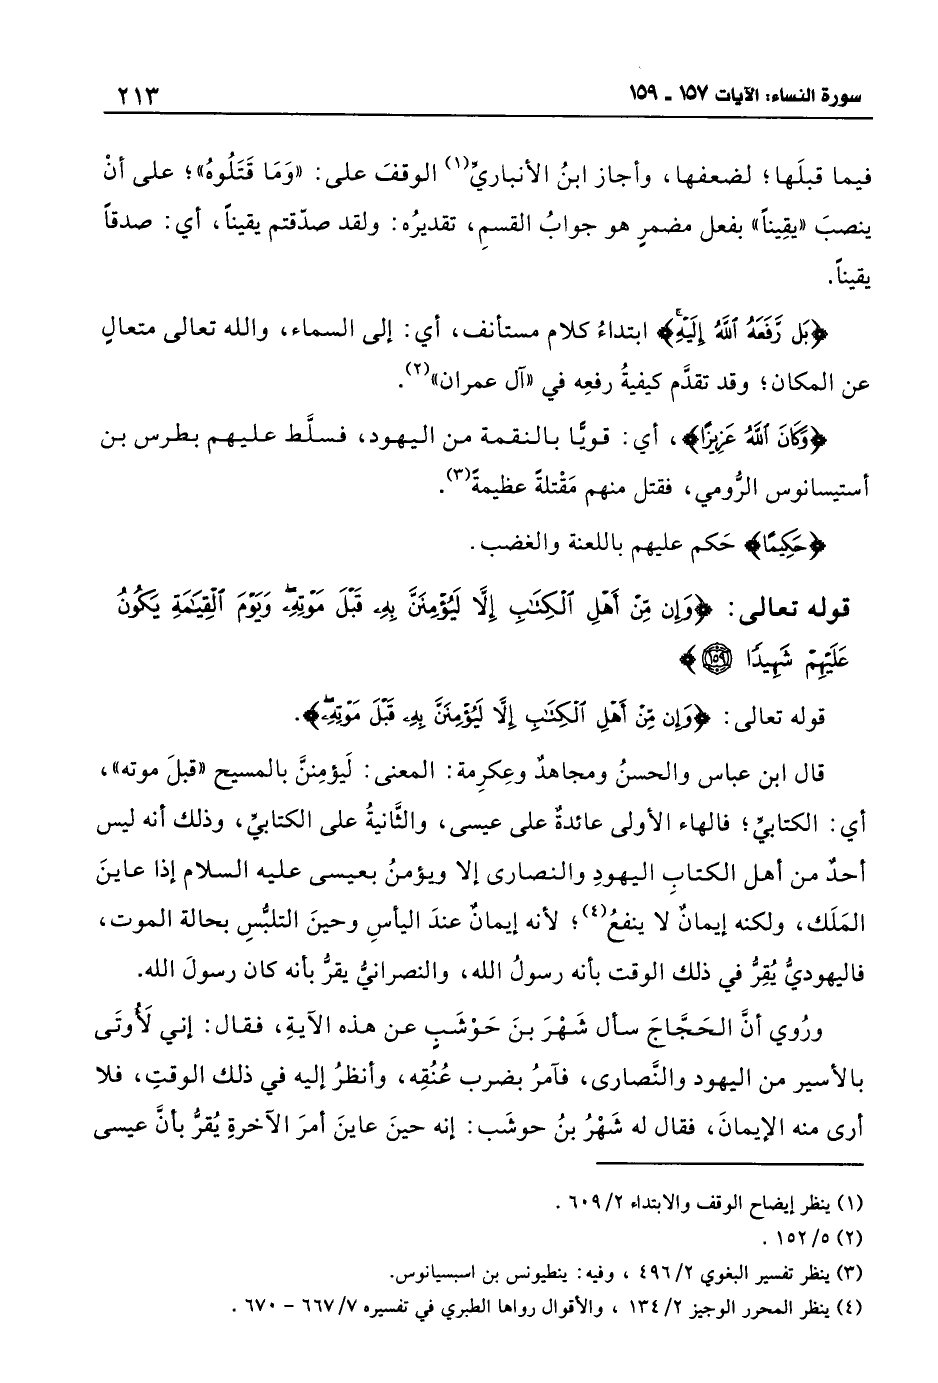 سورة النساء: الآيات ١٥٧ - ١٥٩ ٢١٣
فيما قبلَها؛ لضعفها، وأجاز ابنُ الأنباريِّ(١) الوقفَ على: «وَمَا قَتَلُوهُ»؛ على أنْ
ينصبَ «يقِيناً» بفعل مضمرٍ هو جوابُ القسمِ، تقديرُه: ولقد صدّقتم يقيناً، أي: صدقاً
يقيناً.
﴿بَل رَّفَعَهُ ٱللَّهُ إِلَيْهِ﴾ ابتداءُ كلام مستأنف، أي: إلى السماء، والله تعالى متعالٍ
عن المكان؛ وقد تقدَّم كيفيةُ رفعِه في «آل عمران»(٢).
﴿وَكَانَ ٱللَّهُ عَزِيزًا﴾، أي: قويًّا بالنقمة من اليهود، فسلَّط عليهم بطرس بن
أستيسانوس الرُّومي، فقتل منهم مَقْتلةً عظيمةً(٣).
﴿حَكِيمًا﴾ حَكم عليهم باللعنة والغضب.
قوله تعالى: ﴿وَإِن مِّنْ أَهْلِ ٱلْكِتَٰبِ إِلَّا لَيُؤْمِنَنَّ بِهِۦ قَبْلَ مَوْتِهِۦۖ وَيَوْمَ ٱلْقِيَٰمَةِ يَكُونُ
عَلَيْهِمْ شَهِيدًا ١٥٩﴾
قوله تعالى: ﴿وَإِن مِّنْ أَهْلِ ٱلْكِتَٰبِ إِلَّا لَيُؤْمِنَنَّ بِهِۦ قَبْلَ مَوْتِهِۦۖ﴾.
قال ابن عباس والحسنُ ومجاهدٌ وعِكرِمة: المعنى: لَيؤمِننَّ بالمسيح «قبلَ موته»،
أي: الكتابيِّ؛ فالهاء الأولى عائدةٌ على عيسى، والثَّانيةُ على الكتابيِّ، وذلك أنه ليس
أحدٌ من أهل الكتابِ اليهودِ والنصارى إلا ويؤمنُ بعيسى عليه السلام إذا عاينَ
المَلَك، ولكنه إيمانٌ لا ينفعُ(٤)؛ لأنه إيمانٌ عندَ اليأسِ وحينَ التلبُّسِ بحالة الموت،
فاليهوديُّ يُقِرُّ في ذلك الوقت بأنه رسولُ الله، والنصرانيُّ يقرُّ بأنه كان رسولَ الله.
ورُوي أنَّ الحَجَّاجَ سأل شَهْرَ بنَ حَوْشَبٍ عن هذه الآيةِ، فقال: إني لَأُوتَى
بالأسير من اليهود والنَّصارى، فآمرُ بضرب عُنُقِه، وأنظرُ إليه في ذلك الوقتِ، فلا
أرى منه الإيمانَ، فقال له شَهْرُ بنُ حوشَب: إنه حينَ عاينَ أمرَ الآخرةِ يُقرُّ بأنَّ عيسى
(١) ينظر إيضاح الوقف والابتداء ٢/ ٦٠٩ .
(٢) ٥/ ١٥٢ .
(٣) ينظر تفسير البغوي ٢/ ٤٩٦ ، وفيه: ينطيونس بن اسبسيانوس.
(٤) ينظر المحرر الوجيز ٢/ ١٣٤ ، والأقوال رواها الطبري في تفسيره ٧/ ٦٦٧ - ٦٧٠ .